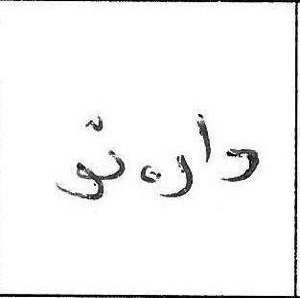 دارە تو